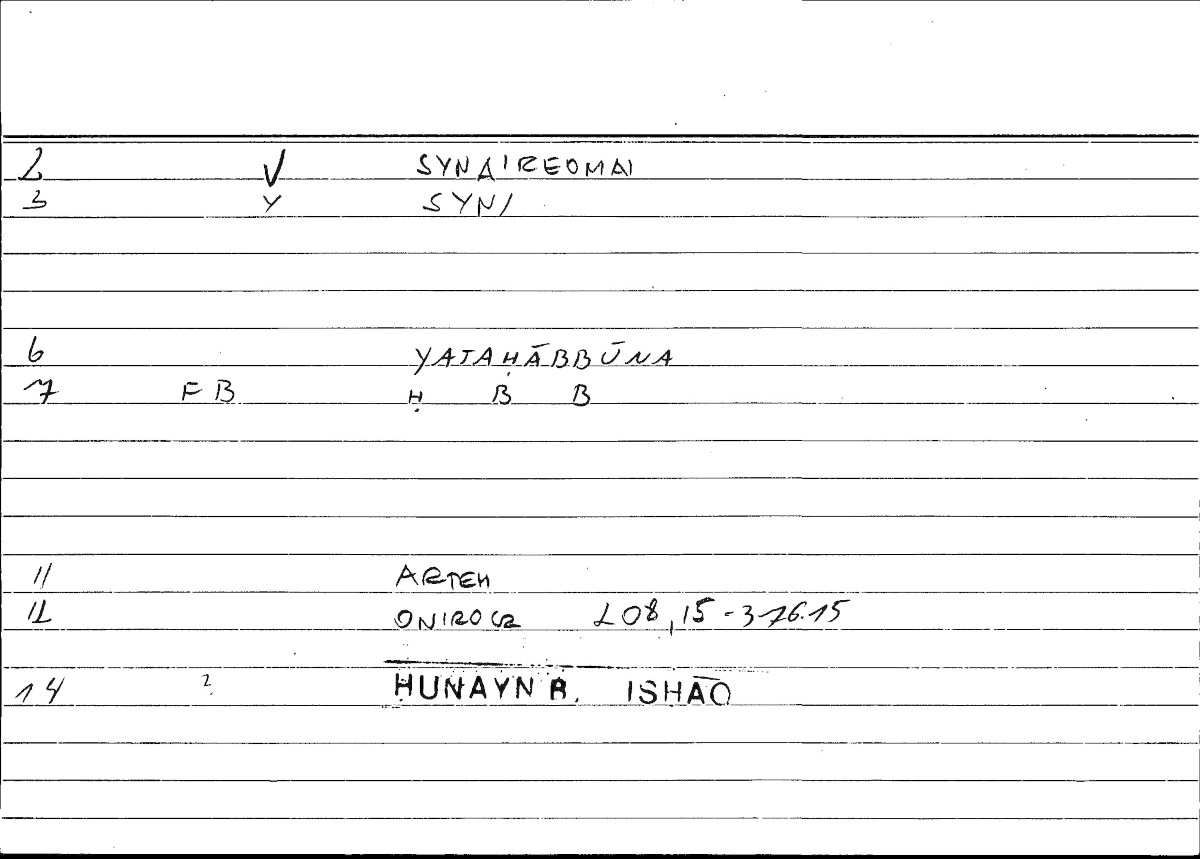 2 V SYNAIREOMAI
3 Y SYN/
6 YATAḤĀBBŪNA
7 FB Ḥ B B
11 ARTEM
12 ONIROCR 208,15-376.15
14 2 ḤUNAYN B. ISḤĀQ